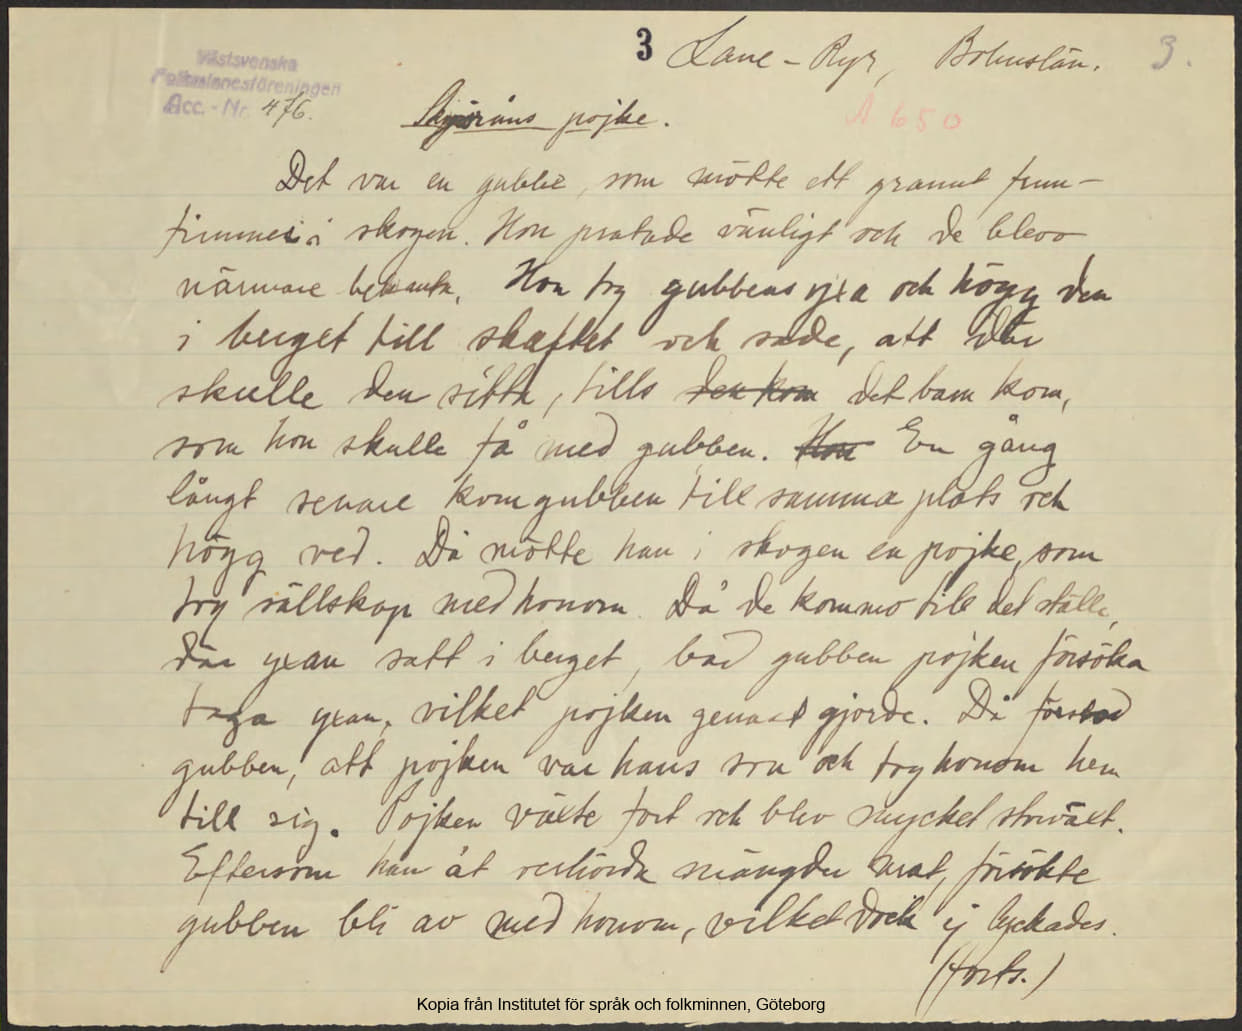 3 Lane-Ryr, Bohuslän. 3.
Västsvenska
Folkminnesföreningen
Acc.-Nr. 476.
Skogsråns pojke.
A 650
Det var en gubbe, som mötte ett grannt frun-
timmer i skogen. Hon pratade vänligt och de blevo
närmare bekanta. Hon tog gubbens yxa och högg den
i berget till skaftet och sade, att där
skulle den sitta, tills den kom det barn kom,
som hon skulle få med gubben. Hon En gång
långt senare kom gubben till samma plats och
högg ved. Då mötte han i skogen en pojke, som
tog sällskap med honom. Då de kommo till det ställe,
där yxan satt i berget, bad gubben pojken försöka
taga yxan, vilket pojken genast gjorde. Då förstod
gubben, att pojken var hans son och tog honom hem
till sig. Pojken växte fort och blev mycket storväxt.
Eftersom han åt oerhörda mängder mat, försökte
gubben bli av med honom, vilket dock ej lyckades.
(forts.)
Kopia från Institutet för språk och folkminnen, Göteborg